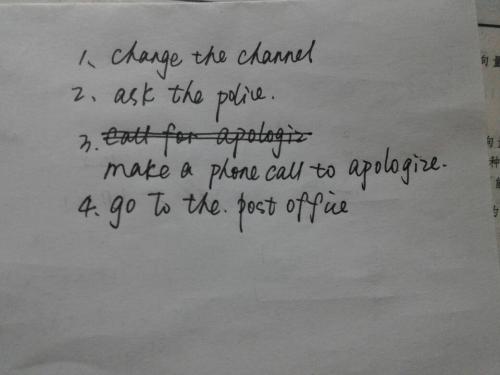 1、change the channel
2、ask the police.
3. call for apologiz
make a phone call to apologize.
4. go to the. post office
向量
向量
种
的